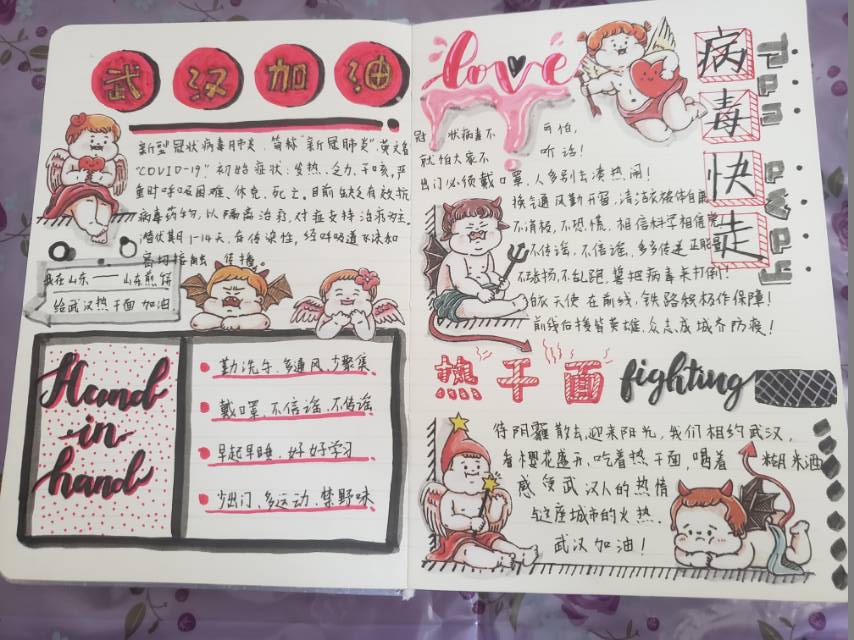 武汉加油
新型冠状病毒肺炎，简称"新冠肺炎"，英文名
"COVID-19"。初始症状：发热、乏力、干咳，严
重时呼吸困难、休克、死亡。目前缺乏有效抗
病毒药物，以隔离治疗，对症支持治疗为主。
潜伏期1-14天，存传染性，经呼吸道飞沫和
密切接触 传播。
我在山东——山东煎饼
给武汉热干面加油
Hand
in
hand
勤洗手、多通风、少聚集
戴口罩、不信谣、不传谣
早起早睡、好好学习
少出门、多运动、禁野味
love
病毒快走
Run away
冠 状病毒不 可怕，
就怕大家不 听话！
出门必须戴口罩，人多别去凑热闹！
换气通风勤开窗，清洁衣被体自康
不消极，不恐慌，相信科学相信党
不传谣，不信谣，多多传递正能量
不张扬，不乱跑，誓把病毒来打倒！
白衣天使在前线，铁路积极作保障！
前线后援皆英雄，众志成城齐防疫！
热干面 fighting
待阴霾散去，迎来阳光，我们相约武汉，
看樱花盛开，吃着热干面，喝着 糊米酒
感受武汉人的热情
与这座城市的火热。
武汉加油！